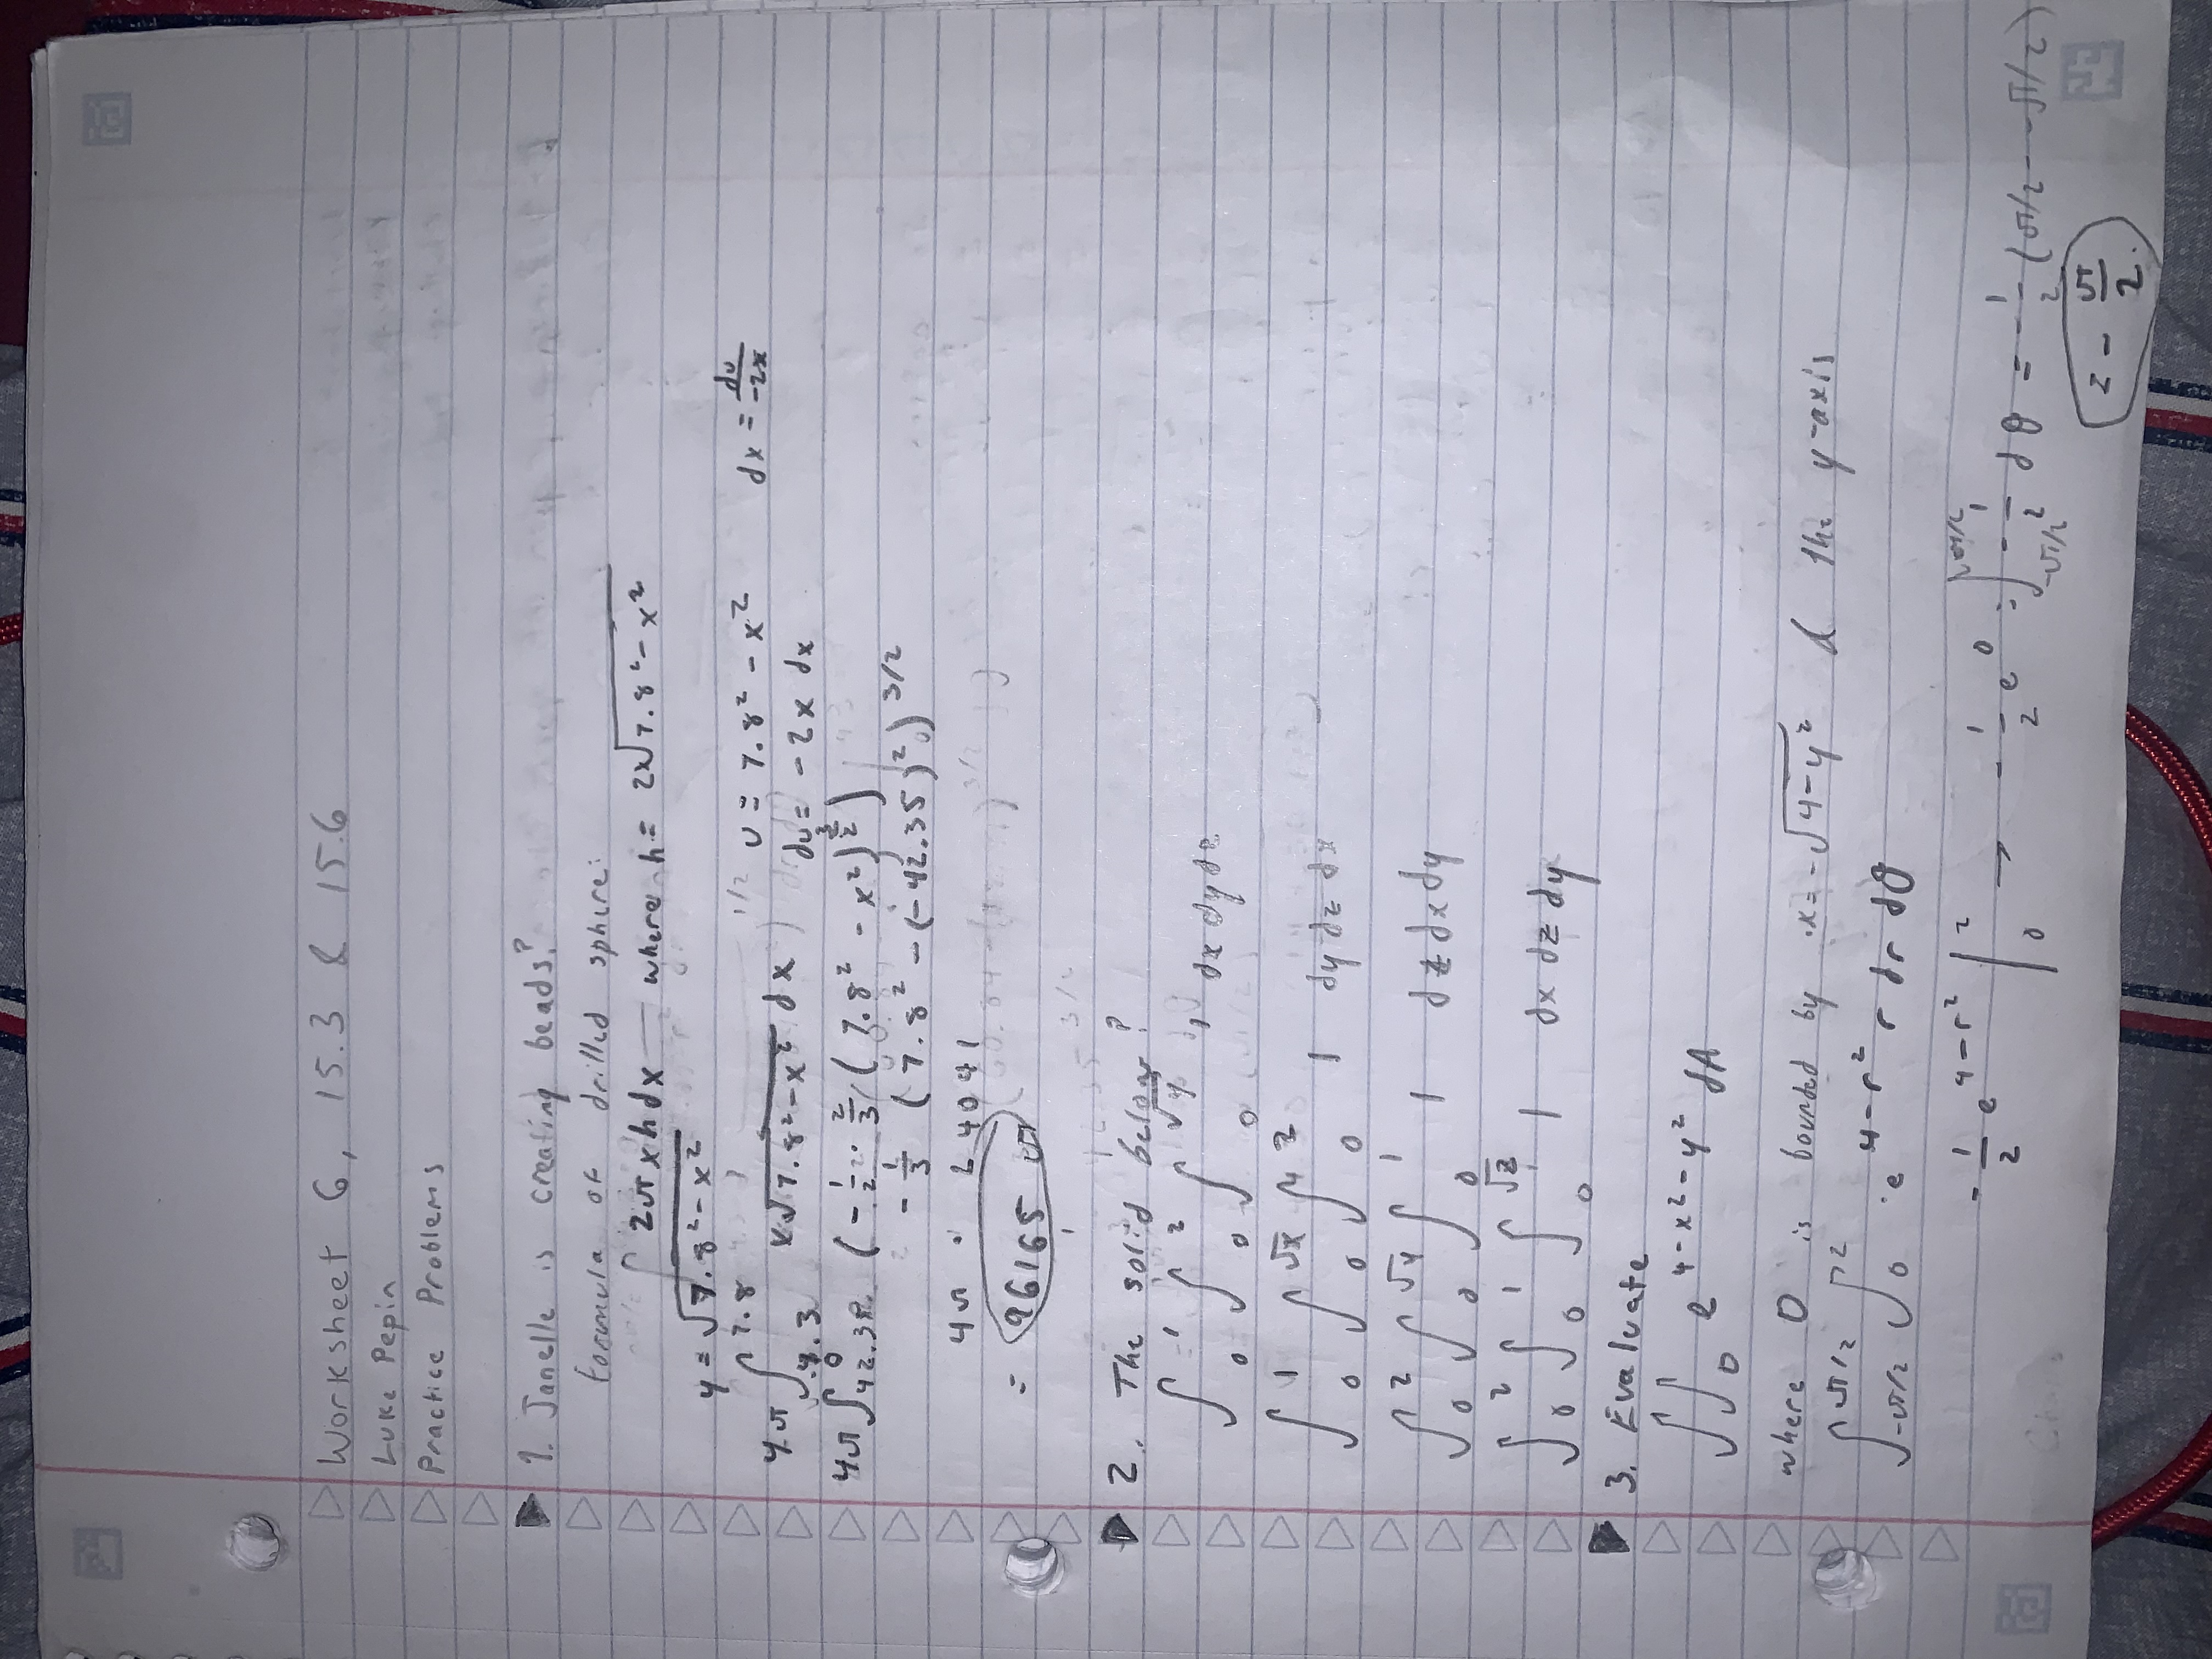 Worksheet 6, 15.3 & 15.6
Luke Pepin
Practice Problems
1. Janelle is creating beads?
Formula of drilled sphere:
∫ 2π x h dx — where h = 2√7.8² - x²
y = √7.8² - x²
4π ∫ 7.8 4.3 x√7.8² - x² dx 1/2 u = 7.8² - x² dx = du/-2x
du = -2x dx
4π ∫ 0 42.35 (-1/2 · 2/3 (7.8² - x²)^3/2)
-1/3 (7.8² - (-42.35)²)^3/2
4π · 24041
= 96165 π
2. The solid below?
∫₀¹ ∫₀² ∫₀^√y 1 dx dy dz
∫₀¹ ∫₀^√x ∫₀² 1 dy dz dx
∫₀² ∫₀^√y ∫₀¹ 1 dz dx dy
∫₀² ∫₀¹ ∫₀^√z 1 dx dz dy
3. Evaluate
∫∫_D e^4-x²-y² dA
where D is bounded by x = -√4-y² & the y-axis
∫_-π/2^π/2 ∫₀² e^4-r² r dr dθ
-1/2 e^4-r² |₀² → -1/2 e⁰ = ∫_-π/2^π/2 -1/2 dθ = -1/2 (π/2 - -π/2)
= - π/2